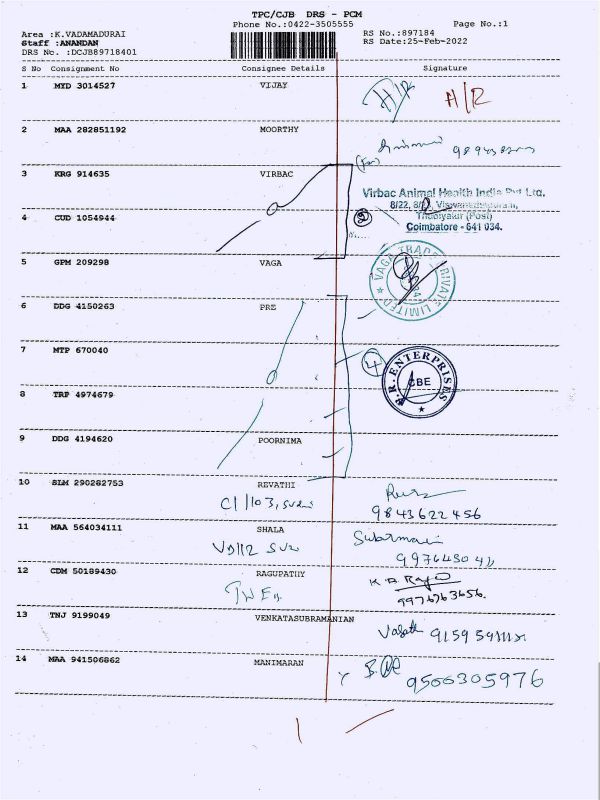 TPC/CJB DRS - PCM
Phone No.:0422-3505555 Page No.:1
Area :K.VADAMADURAI RS No.:897184
Staff :ANANDAN RS Date:25-Feb-2022
DRS No. :DCJB89718401
S No Consignment No Consignee Details Signature
1 MYD 3014527 VIJAY H/R H/R
2 MAA 282851192 MOORTHY
3 KRG 914635 VIRBAC (For)
Virbac Animal Health India Pvt. Ltd.
8/22, Viswanathapuram,
Thudiyalur (Post)
4 CUD 1054944 2 Coimbatore - 641 034.
5 GPM 209298 VAGA VAGA TRADE PRIVATE LIMITED
6 DDG 4150263 PRE
7 MTP 670040 4 ENTERPRISES CBE
8 TRP 4974679
9 DDG 4194620 POORNIMA
10 SLM 290282753 REVATHI
C1/103, 9843622456
11 MAA 564034111 SHALA
12 CDM 50189430 RAGUPATHY
9976763656.
13 TNJ 9199049 VENKATASUBRAMANIAN
14 MAA 941506862 MANIMARAN
9506305976